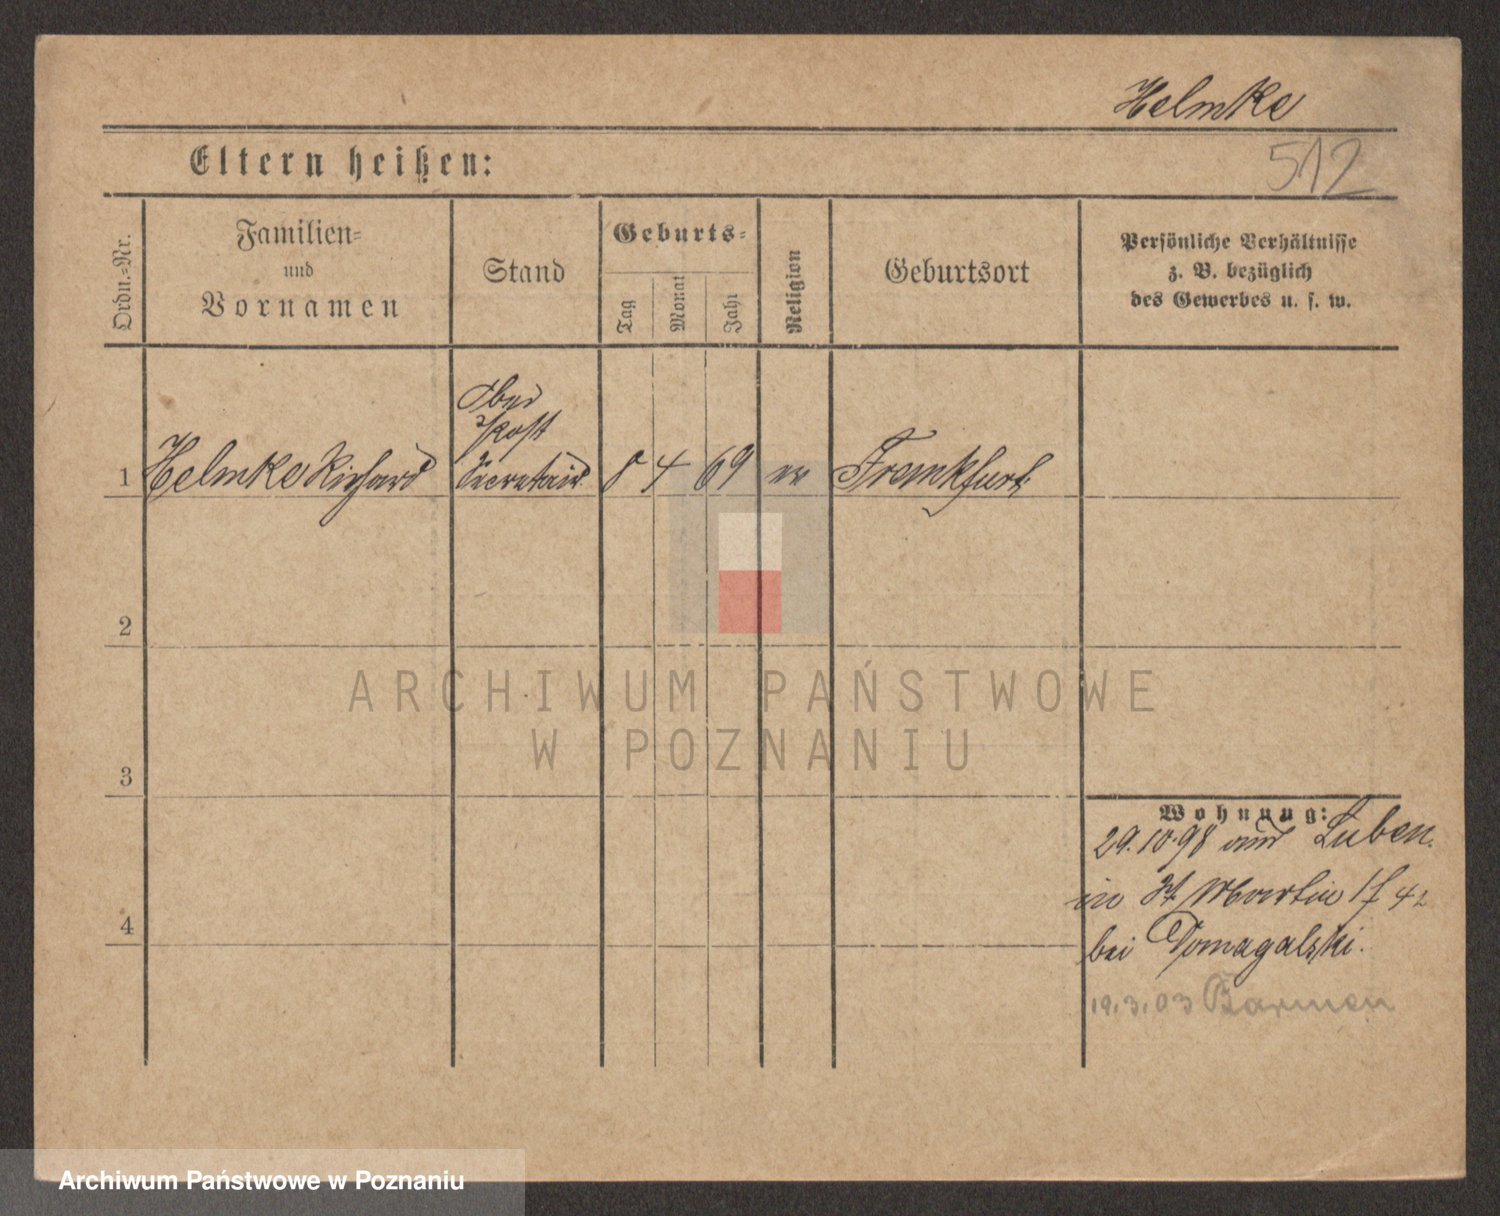 Helmke
512
Eltern heißen:
Ordn.-Nr.
Familien-
und
Vornamen
Stand
Geburts-
Tag
Monat
Jahr
Religion
Geburtsort
Persönliche Verhältnisse
z. B. bezüglich
des Gewerbes u. s. w.
Ober
Post
1 Helmke Richard Secretair 8 4 69 ev Frankfurt
2
ARCHIWUM PAŃSTWOWE
W POZNANIU
3
Wohnung:
29.10.98 aus Luben.
in St Martin
4
bei Domagalski.
19.3.03 Barmen
Archiwum Państwowe w Poznaniu